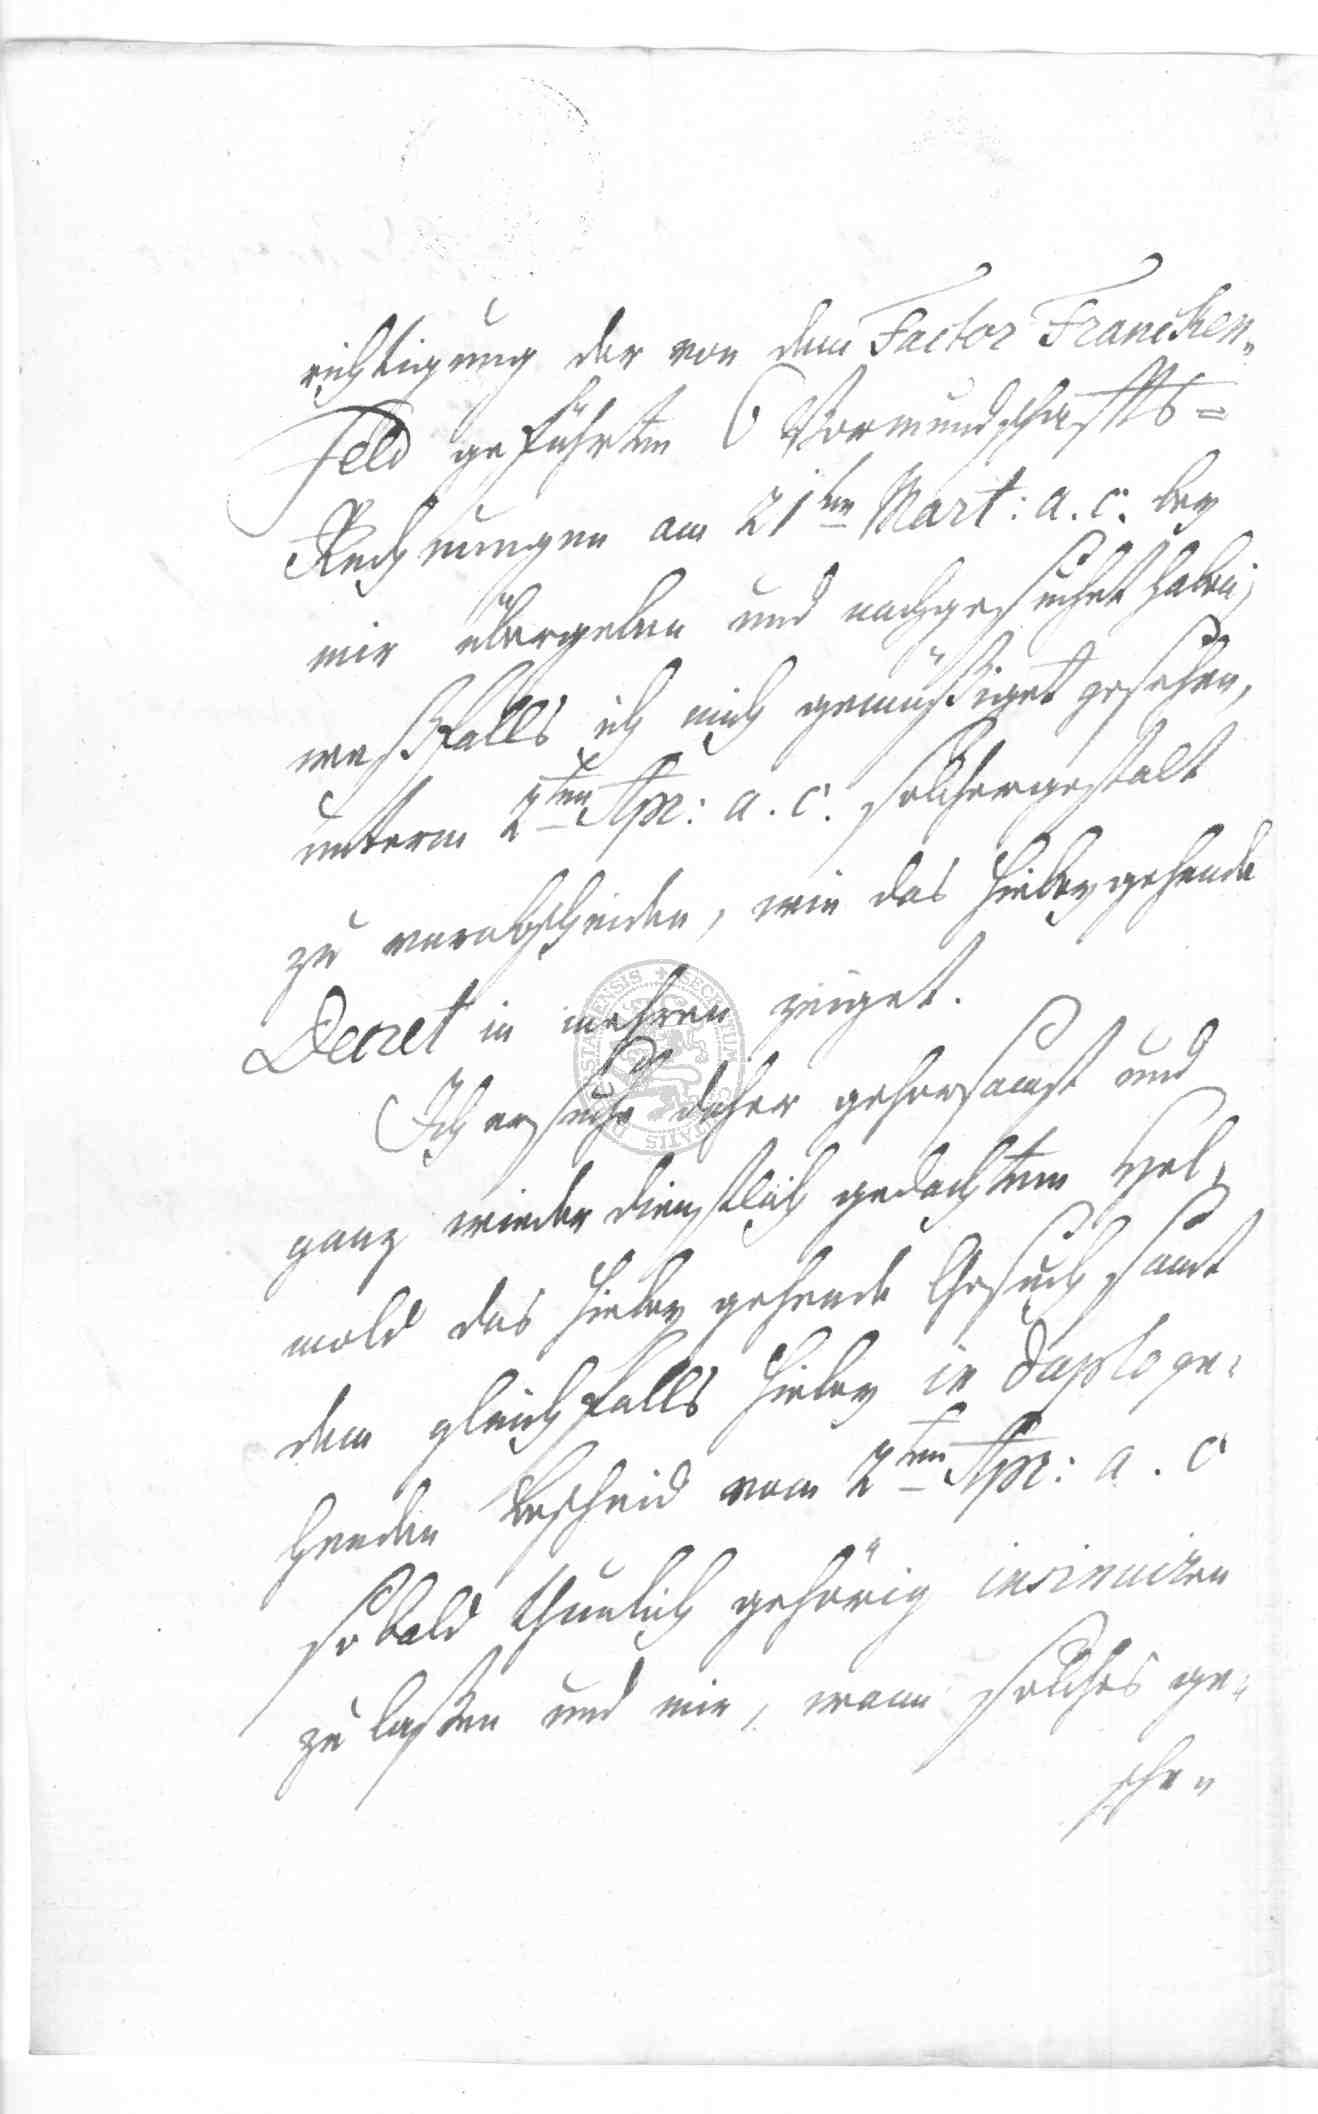 richtigung der von dem Factor Francken„
Feld geführten 6 Vormundschaffts=
Rechnungen am 21ten Mart: a. c. bey
mir übergeben und nachgesuchet haben,
weßfalls ich mich gemüßiget gesehen,
unterm 2ten Apr: a. c. solchergestalt
zu verabscheiden, wie das hiebeygehende
Decret in mehren zeiget.
Ich ersuche daher gehorsamst und
ganz wieder dienstlich gedachtem Hel„
mold das hiebey gehende Gesuch samt
dem gleichfalls hiebey in duplo ge„
henden Bescheid vom 2ten Apr: a. c
so bald thunlich gehörig insinuiren
zu laßen und mir, wann solches ge„
schen
SECRETUM CIVITATIS